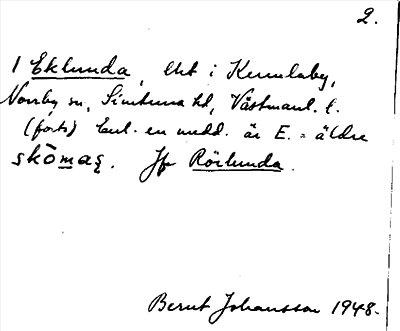 2.
1 Eklunda, lht i Kumlaby,
Norrby sn, Simtuna hd, Västmanl. l.
(forts) Enl. en medd. är E. = äldre
skōmag. Jfr Rörlunda.
Bernt Johansson 1948.